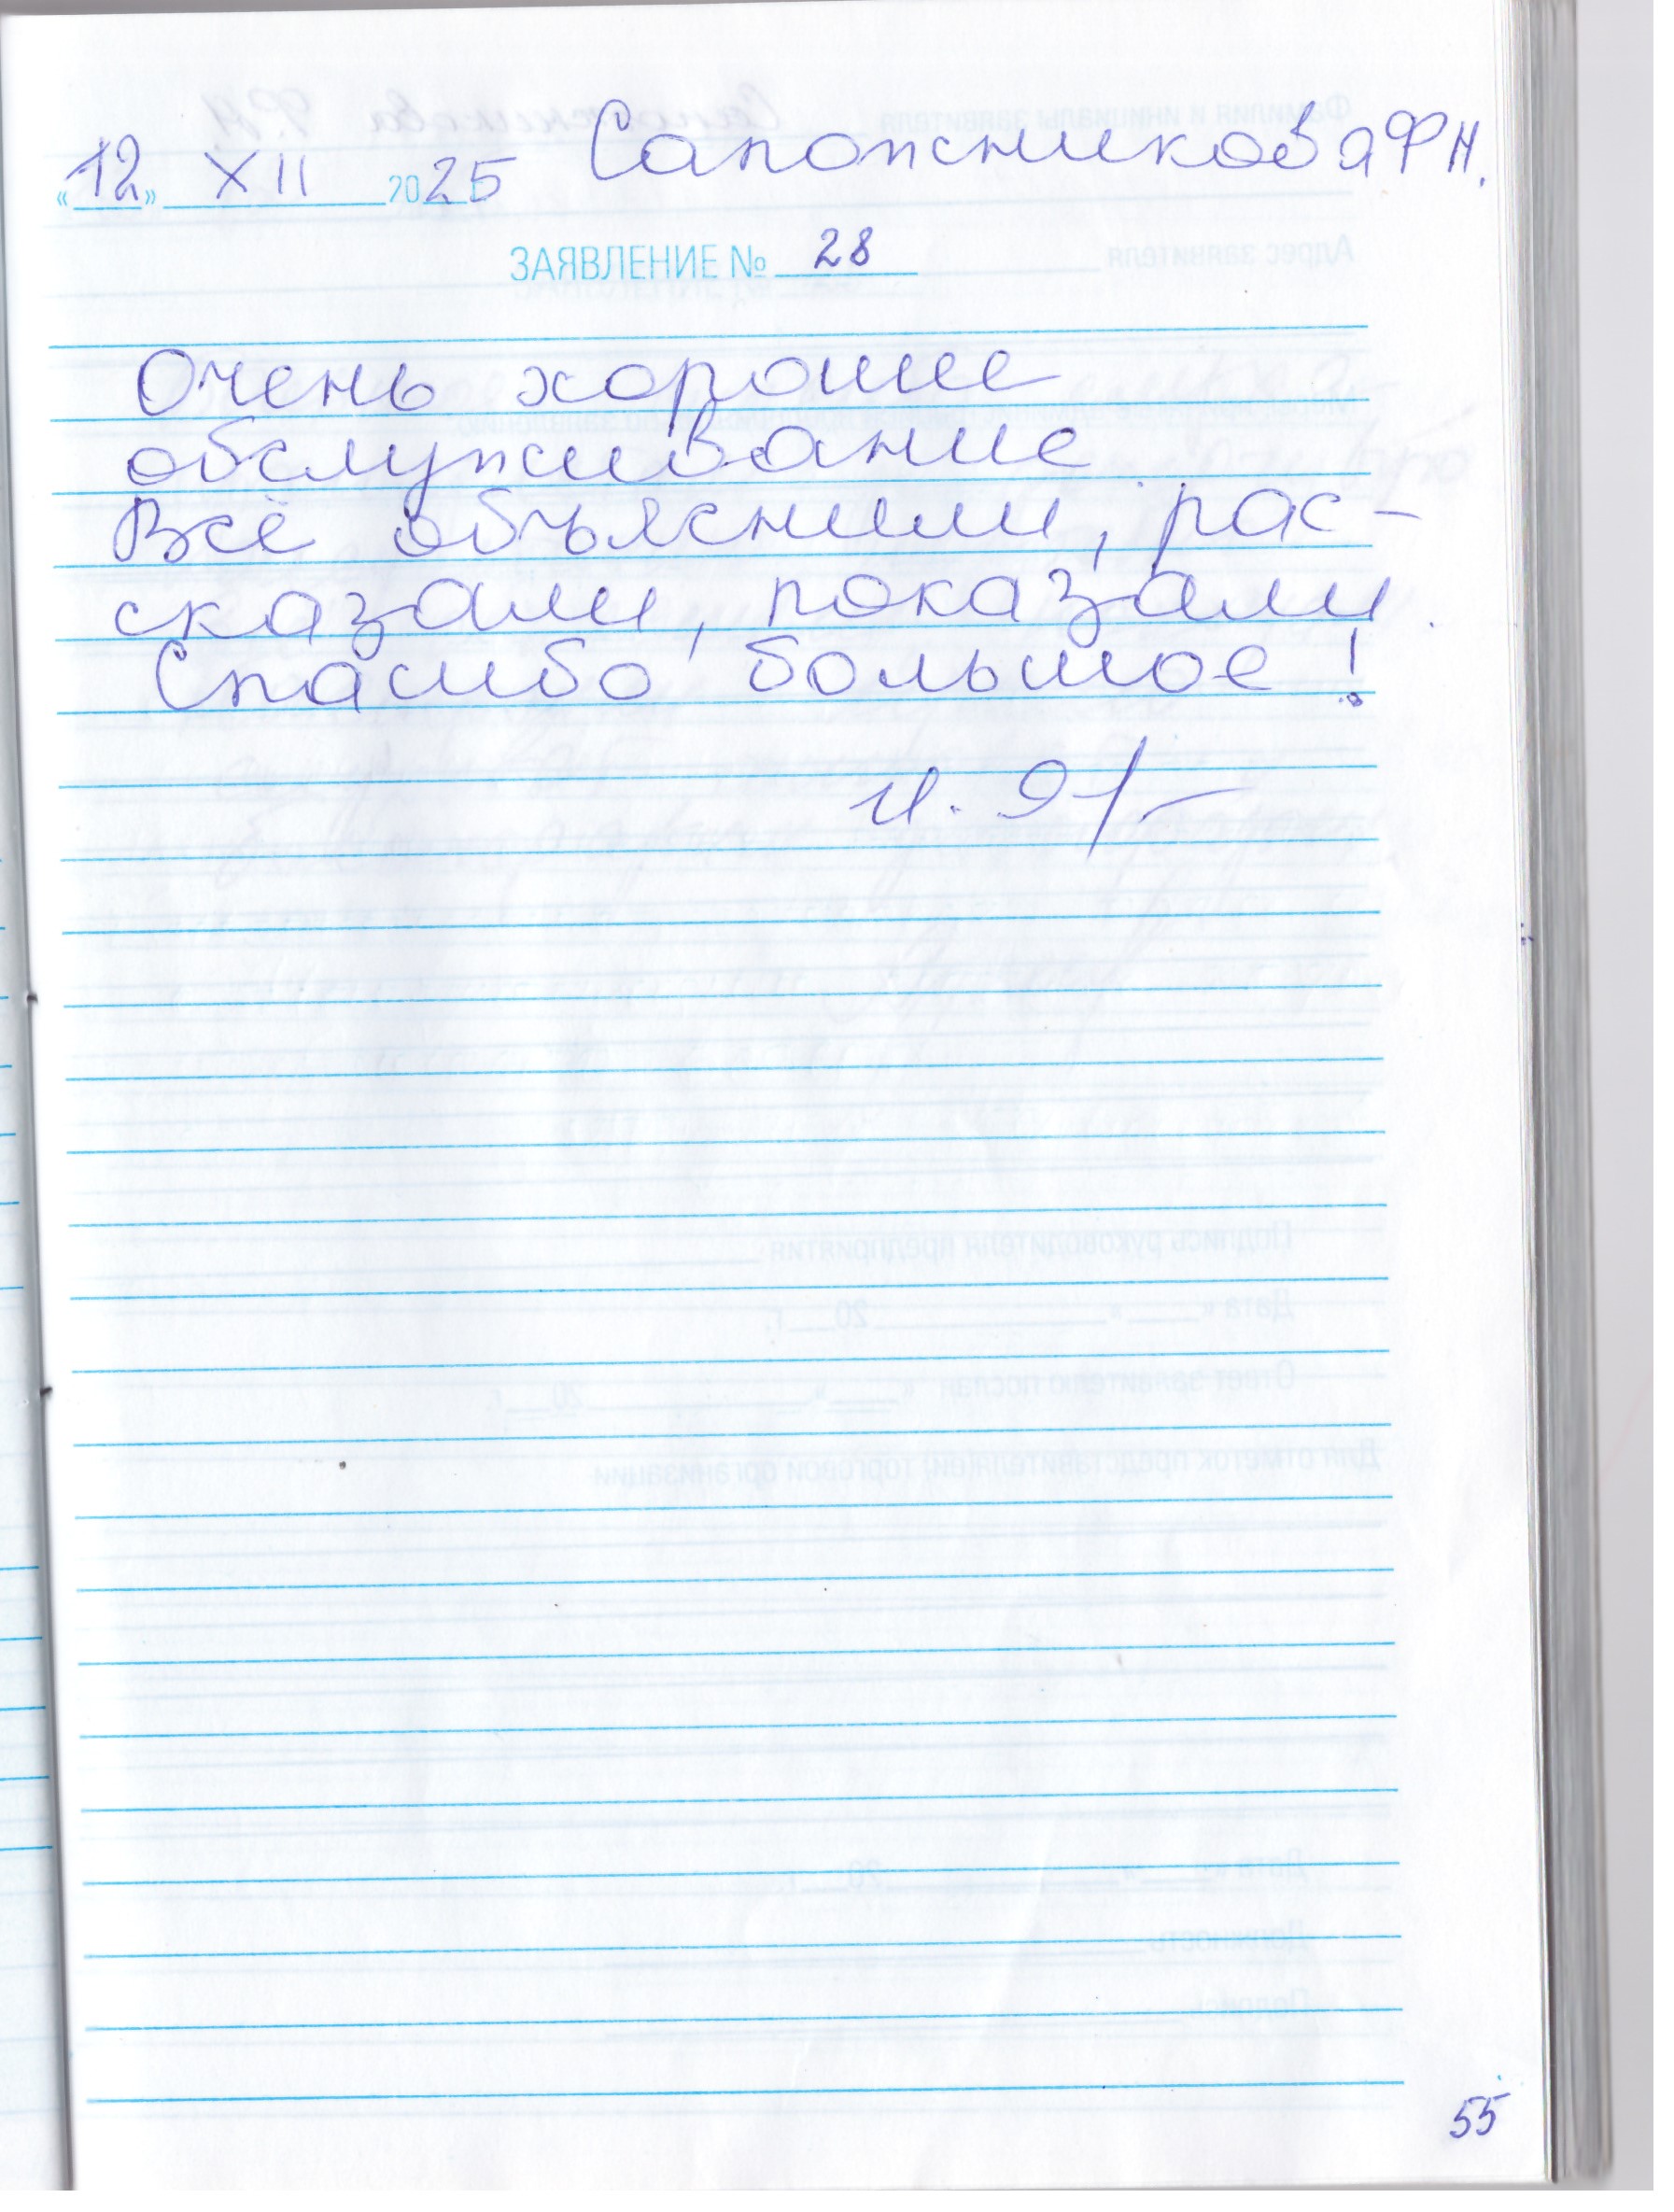 «12» XII 2025 Сапожникова Ф Н.
ЗАЯВЛЕНИЕ № 28
Очень хорошее
обслуживание
Всё объяснили, рас-
сказали, показали.
Спасибо большое!
55